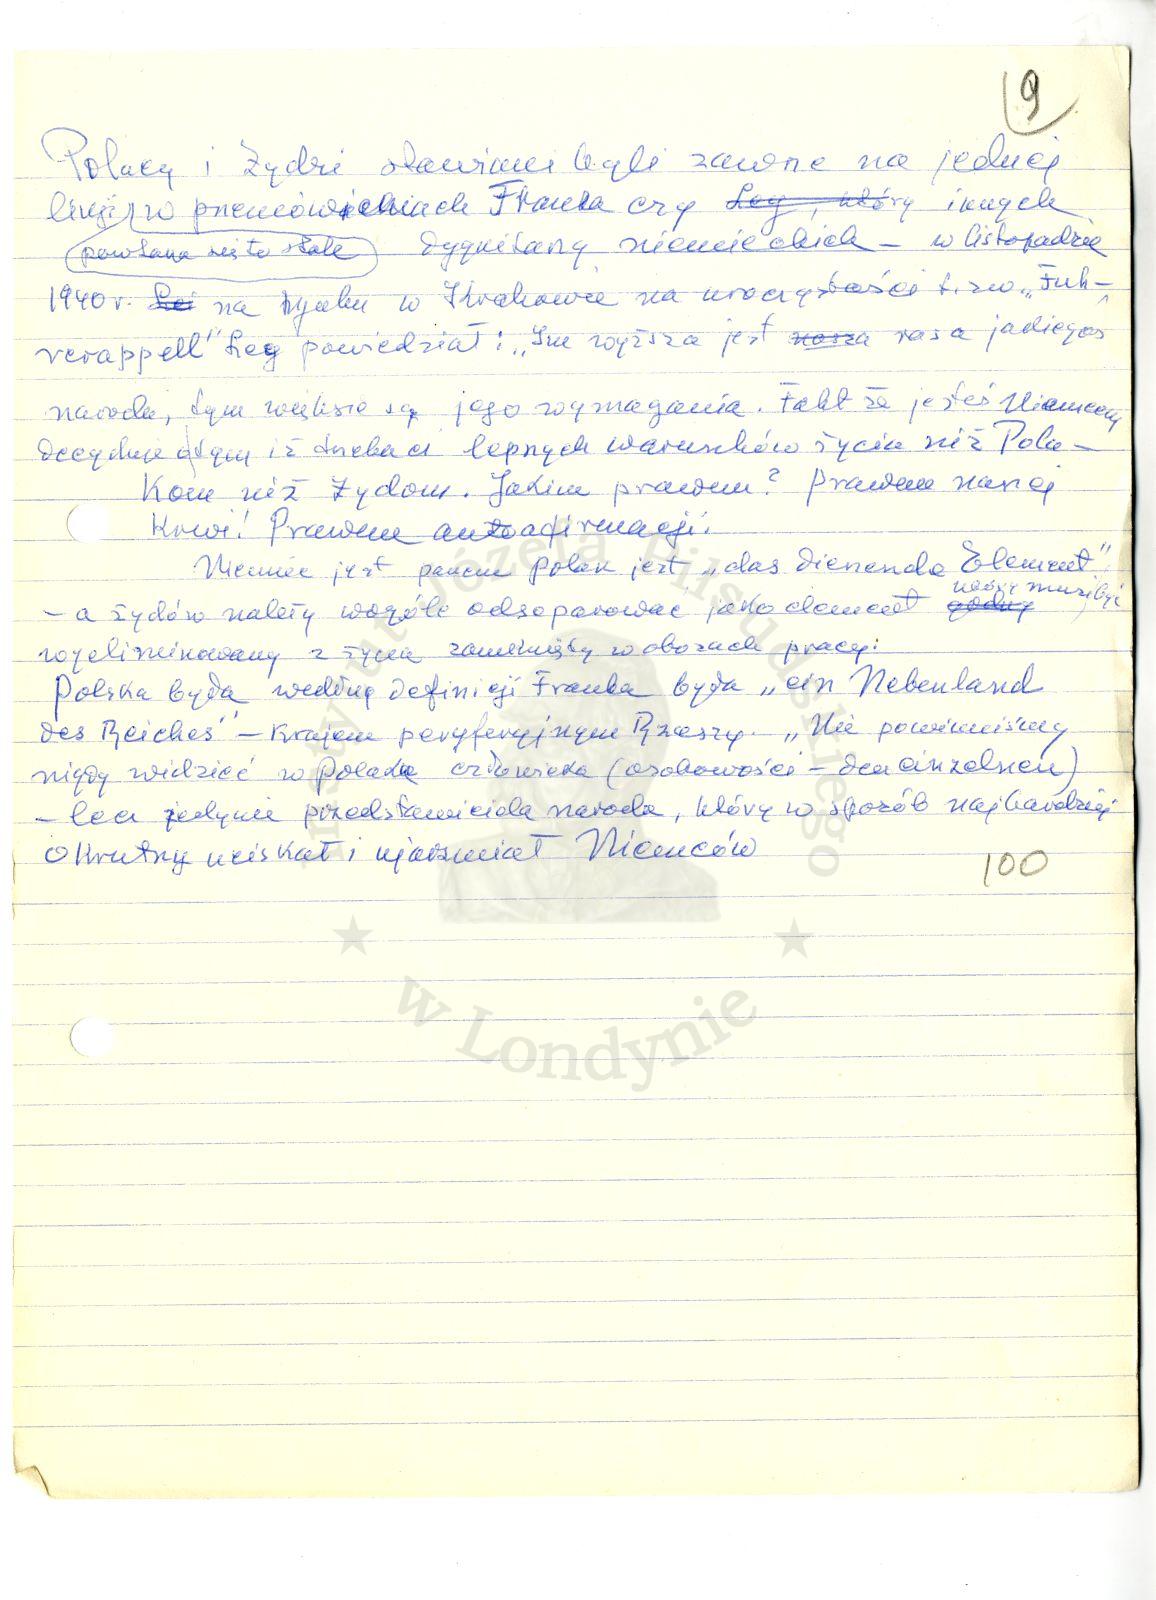 9
Polacy i Żydzi stawiani byli zawsze na jednej
linji w przemówieniach Franka czy Ley, który innych
powtarza się to stale dygnitarzy niemieckich – w listopadzie
1940 r. Lei na rynku w Krakowie na uroczystości t.zw. „Füh-
rerappell" Ley powiedział: „Im wyższa jest nasza rasa jakiegoś
narodu, tym większe są jego wymagania. Fakt że jesteś Niemcem
decyduje o tym iż trzeba ci lepszych warunków życia niż Pola-
kom niż Żydom. Jakim prawem? Prawem naszej
krwi! Prawem autoafirmacji.
Niemiec jest panem Polak jest „das dienende Element".
– a żydów należy wogóle odseparować jako element który musi być
wyeliminowany z życia zamknięty w obozach pracy.
Polska była według definicji Franka była „ein Nebenland
des Reiches" – Krajem peryferyjnym Rzeszy. „Nie powinniśmy
nigdy widzieć w Polaku człowieka (osobowości – den einzelnen)
– lecz jedynie przedstawiciela narodu, który w sposób najbardziej
okrutny uciskał i ujarzmiał Niemców
100
Instytut Józefa Piłsudskiego
w Londynie